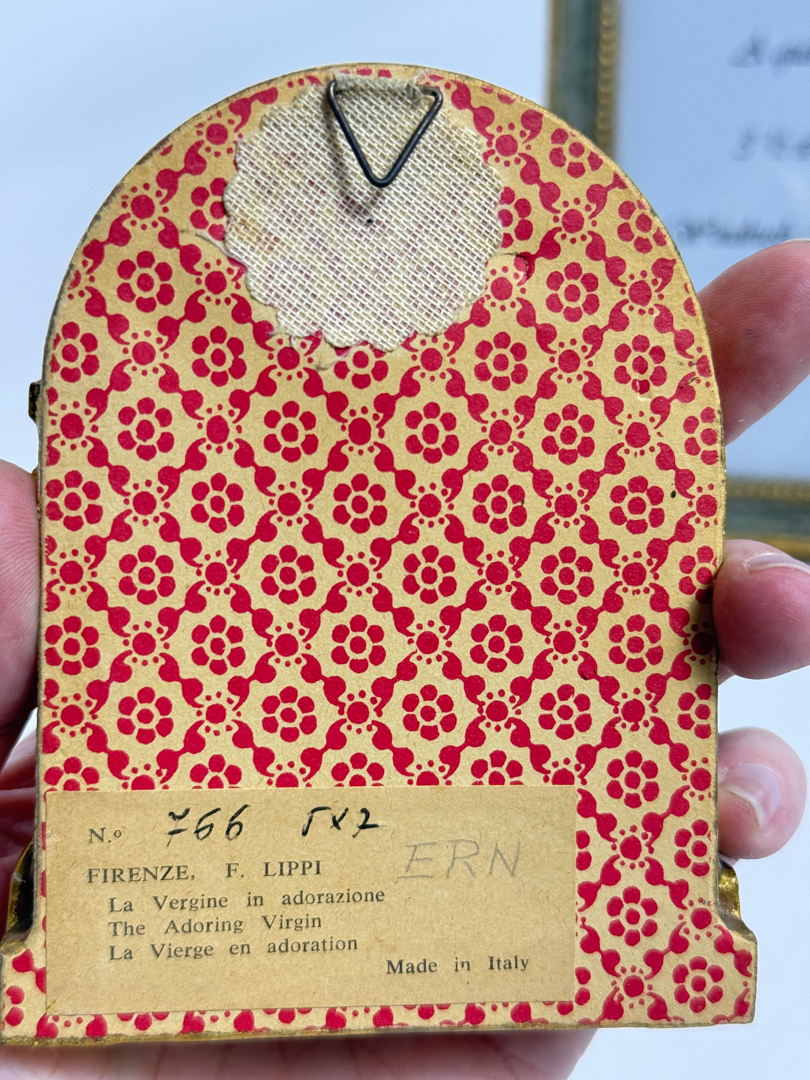 N.o 766 5x7
FIRENZE, F. LIPPI
ERN
La Vergine in adorazione
The Adoring Virgin
La Vierge en adoration
Made in Italy